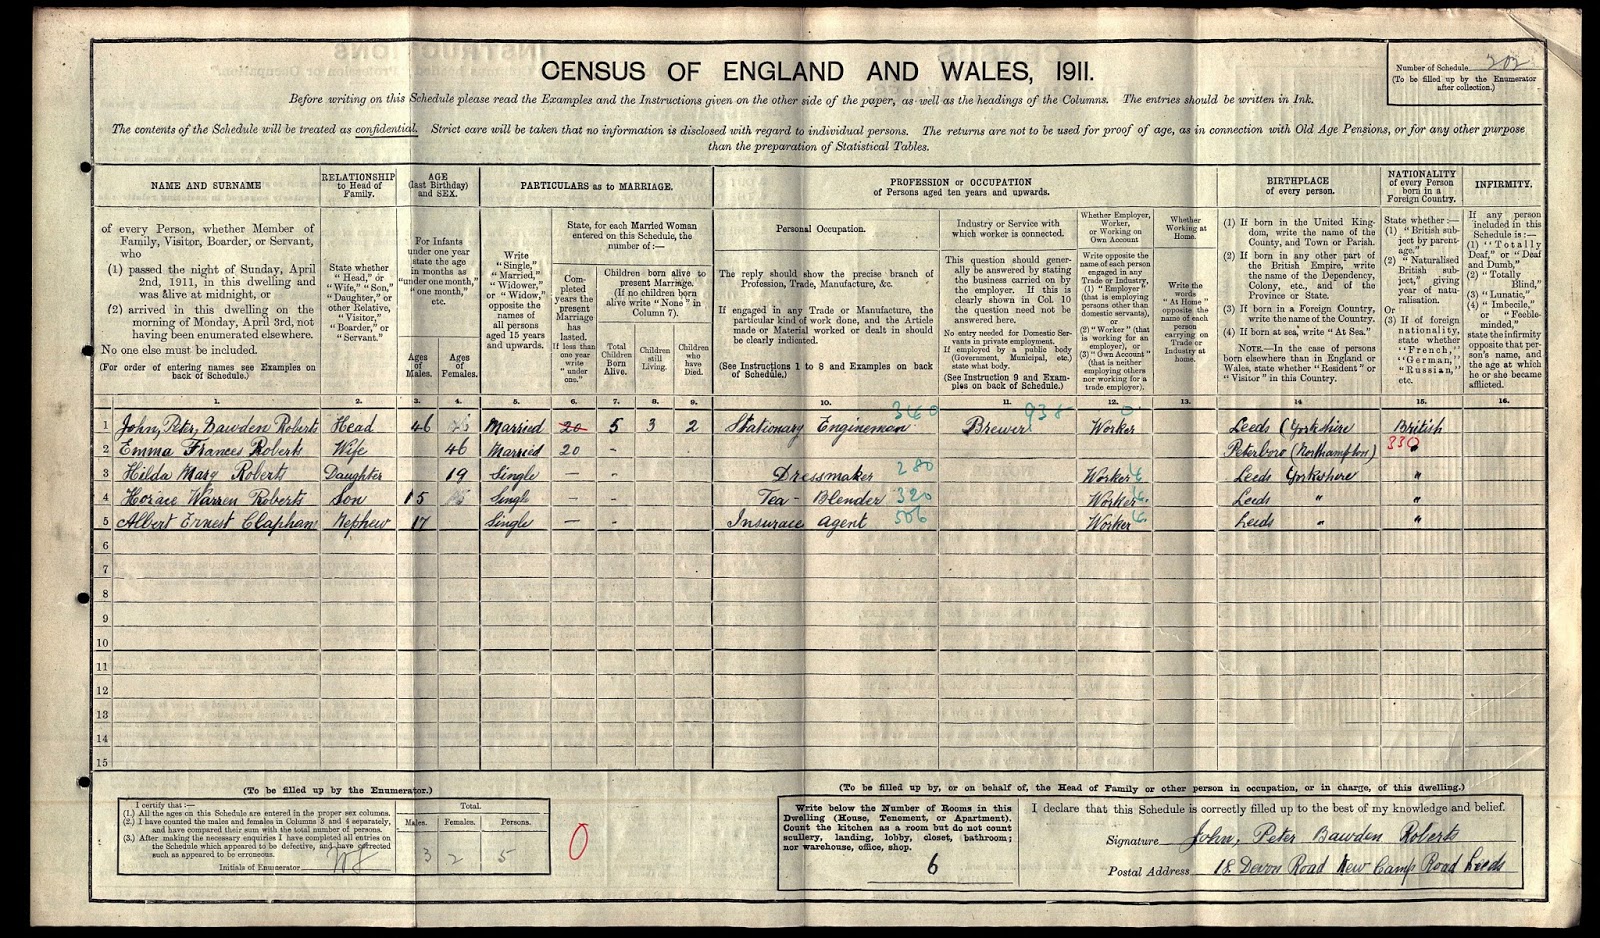 CENSUS OF ENGLAND AND WALES, 1911.
Number of Schedule 202
(To be filled up by the Enumerator after collection.)
Before writing on this Schedule please read the Examples and the Instructions given on the other side of the paper, as well as the headings of the Columns. The entries should be written in Ink.
The contents of the Schedule will be treated as confidential. Strict care will be taken that no information is disclosed with regard to individual persons. The returns are not to be used for proof of age, as in connection with Old Age Pensions, or for any other purpose
than the preparation of Statistical Tables.
NAME AND SURNAME
RELATIONSHIP to Head of Family.
AGE (last Birthday) and SEX.
PARTICULARS as to MARRIAGE.
PROFESSION or OCCUPATION of Persons aged ten years and upwards.
BIRTHPLACE of every person.
NATIONALITY of every Person born in a Foreign Country.
INFIRMITY.
of every Person, whether Member of
Family, Visitor, Boarder, or Servant,
who
(1) passed the night of Sunday, April
2nd, 1911, in this dwelling and
was alive at midnight, or
(2) arrived in this dwelling on the
morning of Monday, April 3rd, not
having been enumerated elsewhere.
No one else must be included.
(For order of entering names see Examples on
back of Schedule.)
State whether
"Head," or
"Wife," "Son,"
"Daughter," or
other Relative,
"Visitor,"
"Boarder," or
"Servant."
For Infants
under one year
state the age
in months as
"under one month,"
"one month,"
etc.
Ages of Males.
Ages of Females.
Write
"Single,"
"Married,"
"Widower,"
or "Widow,"
opposite the
names of
all persons
aged 15 years
and upwards.
State, for each Married Woman
entered on this Schedule, the
number of:—
Completed years the present Marriage has lasted. If less than one year write "under one."
Children born alive to
present Marriage.
(If no children born
alive write "None" in
Column 7).
Total Children Born Alive.
Children still Living.
Children who have Died.
Personal Occupation.
The reply should show the precise branch of
Profession, Trade, Manufacture, &c.
If engaged in any Trade or Manufacture, the
particular kind of work done, and the Article
made or Material worked or dealt in should
be clearly indicated.
(See Instructions 1 to 8 and Examples on back
of Schedule.)
Industry or Service with
which worker is connected.
This question should generally
be answered by stating
the business carried on by
the employer. If this is
clearly shown in Col. 10
the question need not be
answered here.
No entry needed for Domestic Servants
in private employment.
If employed by a public body
(Government, Municipal, etc.)
state what body.
(See Instruction 9 and Examples
on back of Schedule.)
Whether Employer,
Worker,
or Working on
Own Account
Write opposite the
name of each person
engaged in any
Trade or Industry,
(1) "Employer"
(that is employing
persons other than
domestic servants),
or
(2) "Worker" (that
is working for an
employer), or
(3) "Own Account"
(that is neither
employing others
nor working for a
trade employer).
Whether
Working at
Home.
Write the
words
"At Home"
opposite the
name of each
person
carrying on
Trade or
Industry at
home.
(1) If born in the United Kingdom,
write the name of the
County, and Town or Parish.
(2) If born in any other part of
the British Empire, write
the name of the Dependency,
Colony, etc., and of the
Province or State.
(3) If born in a Foreign Country,
write the name of the Country.
(4) If born at sea, write "At Sea."
NOTE.—In the case of persons
born elsewhere than in England or
Wales, state whether "Resident" or
"Visitor" in this Country.
State whether:—
(1) "British subject
by parentage."
(2) "Naturalised
British subject,"
giving
year of naturalisation.
Or
(3) If of foreign
nationality,
state whether
"French,"
"German,"
"Russian,"
etc.
If any person
included in this
Schedule is:—
(1) "Totally
Deaf," or "Deaf
and Dumb,"
(2) "Totally
Blind,"
(3) "Lunatic,"
(4) "Imbecile,"
or "Feeble-minded,"
state the infirmity
opposite that person's
name, and
the age at which
he or she became
afflicted.
1. 2. 3. 4. 5. 6. 7. 8. 9. 10. 11. 12. 13. 14 15. 16.
340 938 0
1 John, Peter, Bawden Roberts Head 46 Married 20 5 3 2 Stationary Engineman Brewer Worker Leeds (Yorkshire British
2 Emma Frances Roberts Wife 46 Married 20 - Peterboro (Northampton) 330 "
3 Hilda Mary Roberts Daughter 19 Single — - Dressmaker 280 Worker Leeds Yorkshire "
4 Horace Warren Roberts Son 15 Single — - Tea - Blender 320 Worker Leeds " "
5 Albert Ernest Clapham Nephew 17 Single — - Insurace Agent 506 Worker Leeds " "
6
7
8
9
10
11
12
13
14
15
(To be filled up by the Enumerator.)
I certify that:—
(1.) All the ages on this Schedule are entered in the proper sex columns.
(2.) I have counted the males and females in Columns 3 and 4 separately,
and have compared their sum with the total number of persons.
(3.) After making the necessary enquiries I have completed all entries on
the Schedule which appeared to be defective, and have corrected
such as appeared to be erroneous.
Initials of Enumerator
Total.
Males. Females. Persons.
3 2 5
0
(To be filled up by, or on behalf of, the Head of Family or other person in occupation, or in charge, of this dwelling.)
Write below the Number of Rooms in this
Dwelling (House, Tenement, or Apartment).
Count the kitchen as a room but do not count
scullery, landing, lobby, closet, bathroom;
nor warehouse, office, shop.
6
I declare that this Schedule is correctly filled up to the best of my knowledge and belief.
Signature John, Peter Bawden Roberts
Postal Address 18 Devon Road New Camp Road Leeds